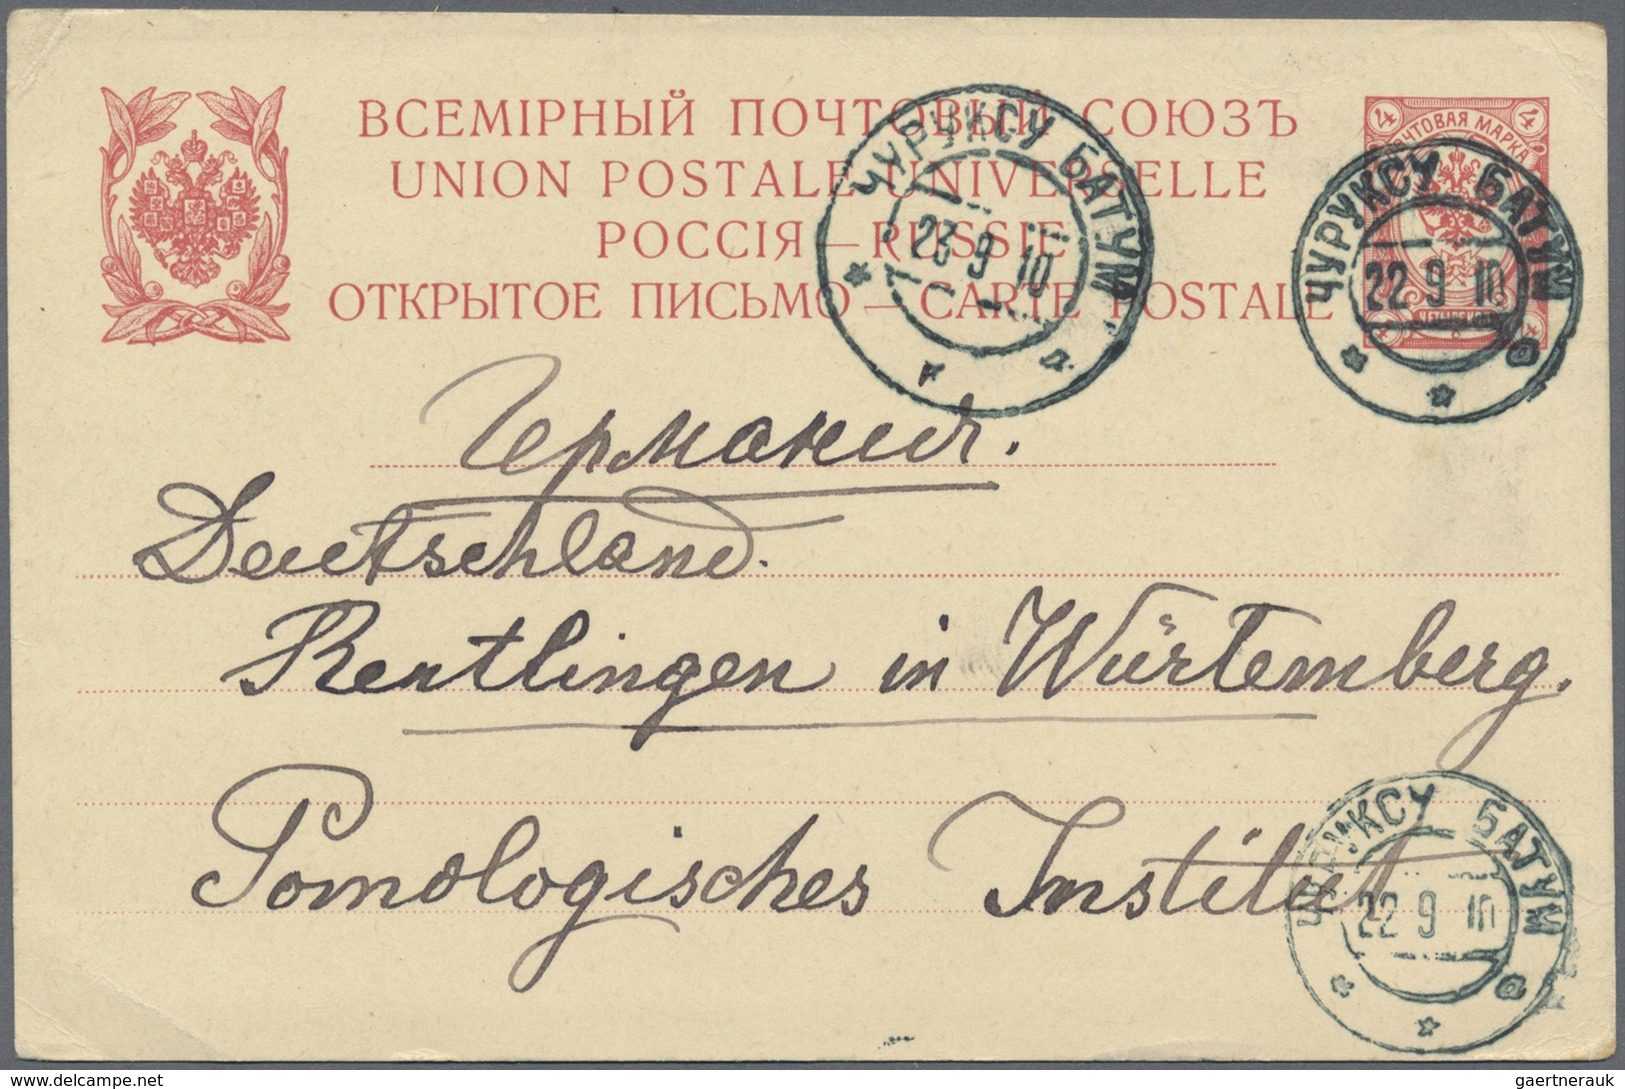 ВСЕМІРНЫЙ ПОЧТОВЫЙ СОЮЗЪ
UNION POSTALE UNIVERSELLE
РОССІЯ — RUSSIE
ОТКРЫТОЕ ПИСЬМО — CARTE POSTALE
4 4
ПОЧТОВАЯ МАРКА
4 4
ЧУРУКСУ БАТУМ
23 9 10
ЧУРУКСУ БАТУМ
22 9 10
а
Германия.
Deutschland.
Reutlingen in Würtemberg.
Pomologisches Institut
ЧУРУКСУ БАТУМ
22 9 10
а
gaertnerauk